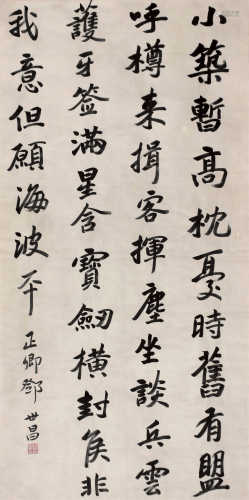 小築暫高枕憂時舊有盟
呼樽来揖客揮麈坐談兵雲
護牙签滿星含寶劔橫封侯非
我意但願海波平
正卿鄧世昌